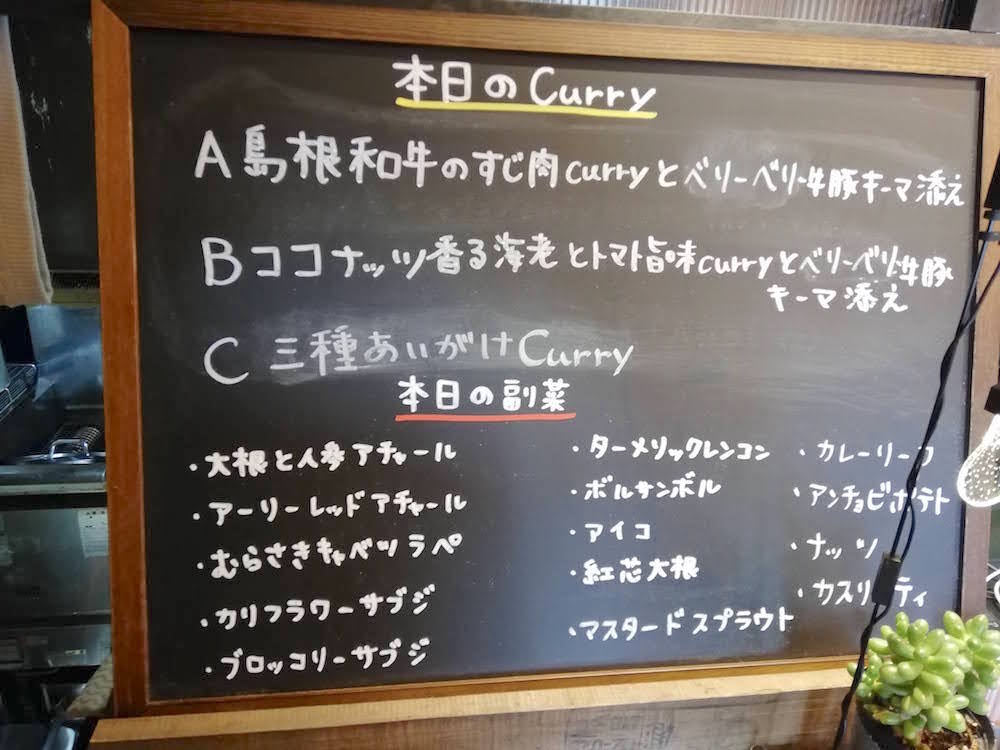 本日のCurry
A 島根和牛のすじ肉curryとベリーベリー牛豚キーマ添え
B ココナッツ香る海老とトマト旨味curryとベリーベリー牛豚
キーマ添え
C 三種あいがけCurry
本日の副菜
・大根と人参アチャール
・アーリーレッドアチャール
・むらさきキャベツラペ
・カリフラワーサブジ
・ブロッコリーサブジ
・ターメリックレンコン
・ポルサンボル
・アイコ
・紅芯大根
・マスタードスプラウト
・カレーリーフ
・アンチョビポテト
・ナッツ
・カスリ ティ